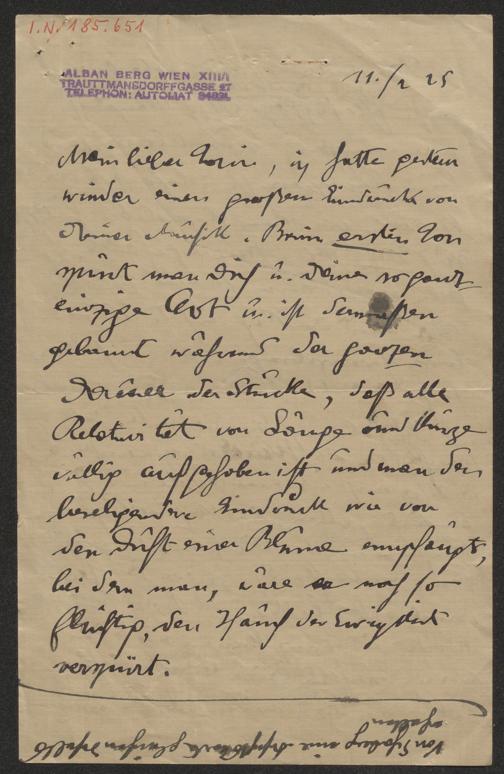 I.N. 185.651
ALBAN BERG WIEN XIII/1
TRAUTTMANSDORFFGASSE 27
TELEPHON: AUTOMAT 84831
11./2 25
Mein lieber, ich hatte gestern
wieder einen großen Eindruck von
Deiner Musik. Beim ersten Ton
spürt man Dich u. Deine so ganz
einzige Art u. ist dermaßen
gebannt während der ganzen
Dauer der Stücke, daß alle
Relativität von Länge und Kürze
völlig aufgehoben ist und man den
beseligenden Eindruck wie von
den Duft einer Blume empfängt,
bei dem man, wäre er noch so
flüchtig, den Hauch der Ewigkeit
verspürt.
Von eine
erhalten